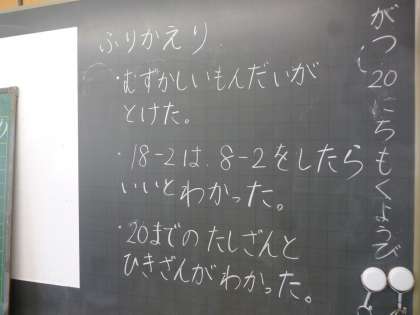 がつ20にちもくようび
ふりかえり
・むずかしいもんだいが
とけた。
・18-2は、8-2をしたら
いいとわかった。
・20までのたしざんと
ひきざんがわかった。